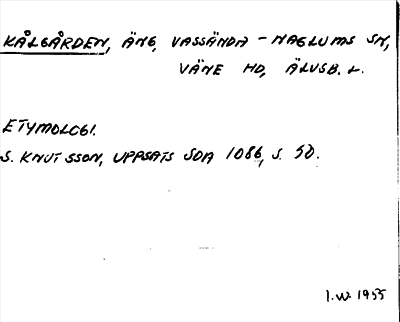 KÅLGÅRDEN, ÄNG, VASSÄNDA-NAGLUMS SN,
VÄNE HD, ÄLVSB. L.
ETYMOLOGI.
S. KNUTSSON, UPPSATS SOA 1086, S. 50.
I.W. 1955